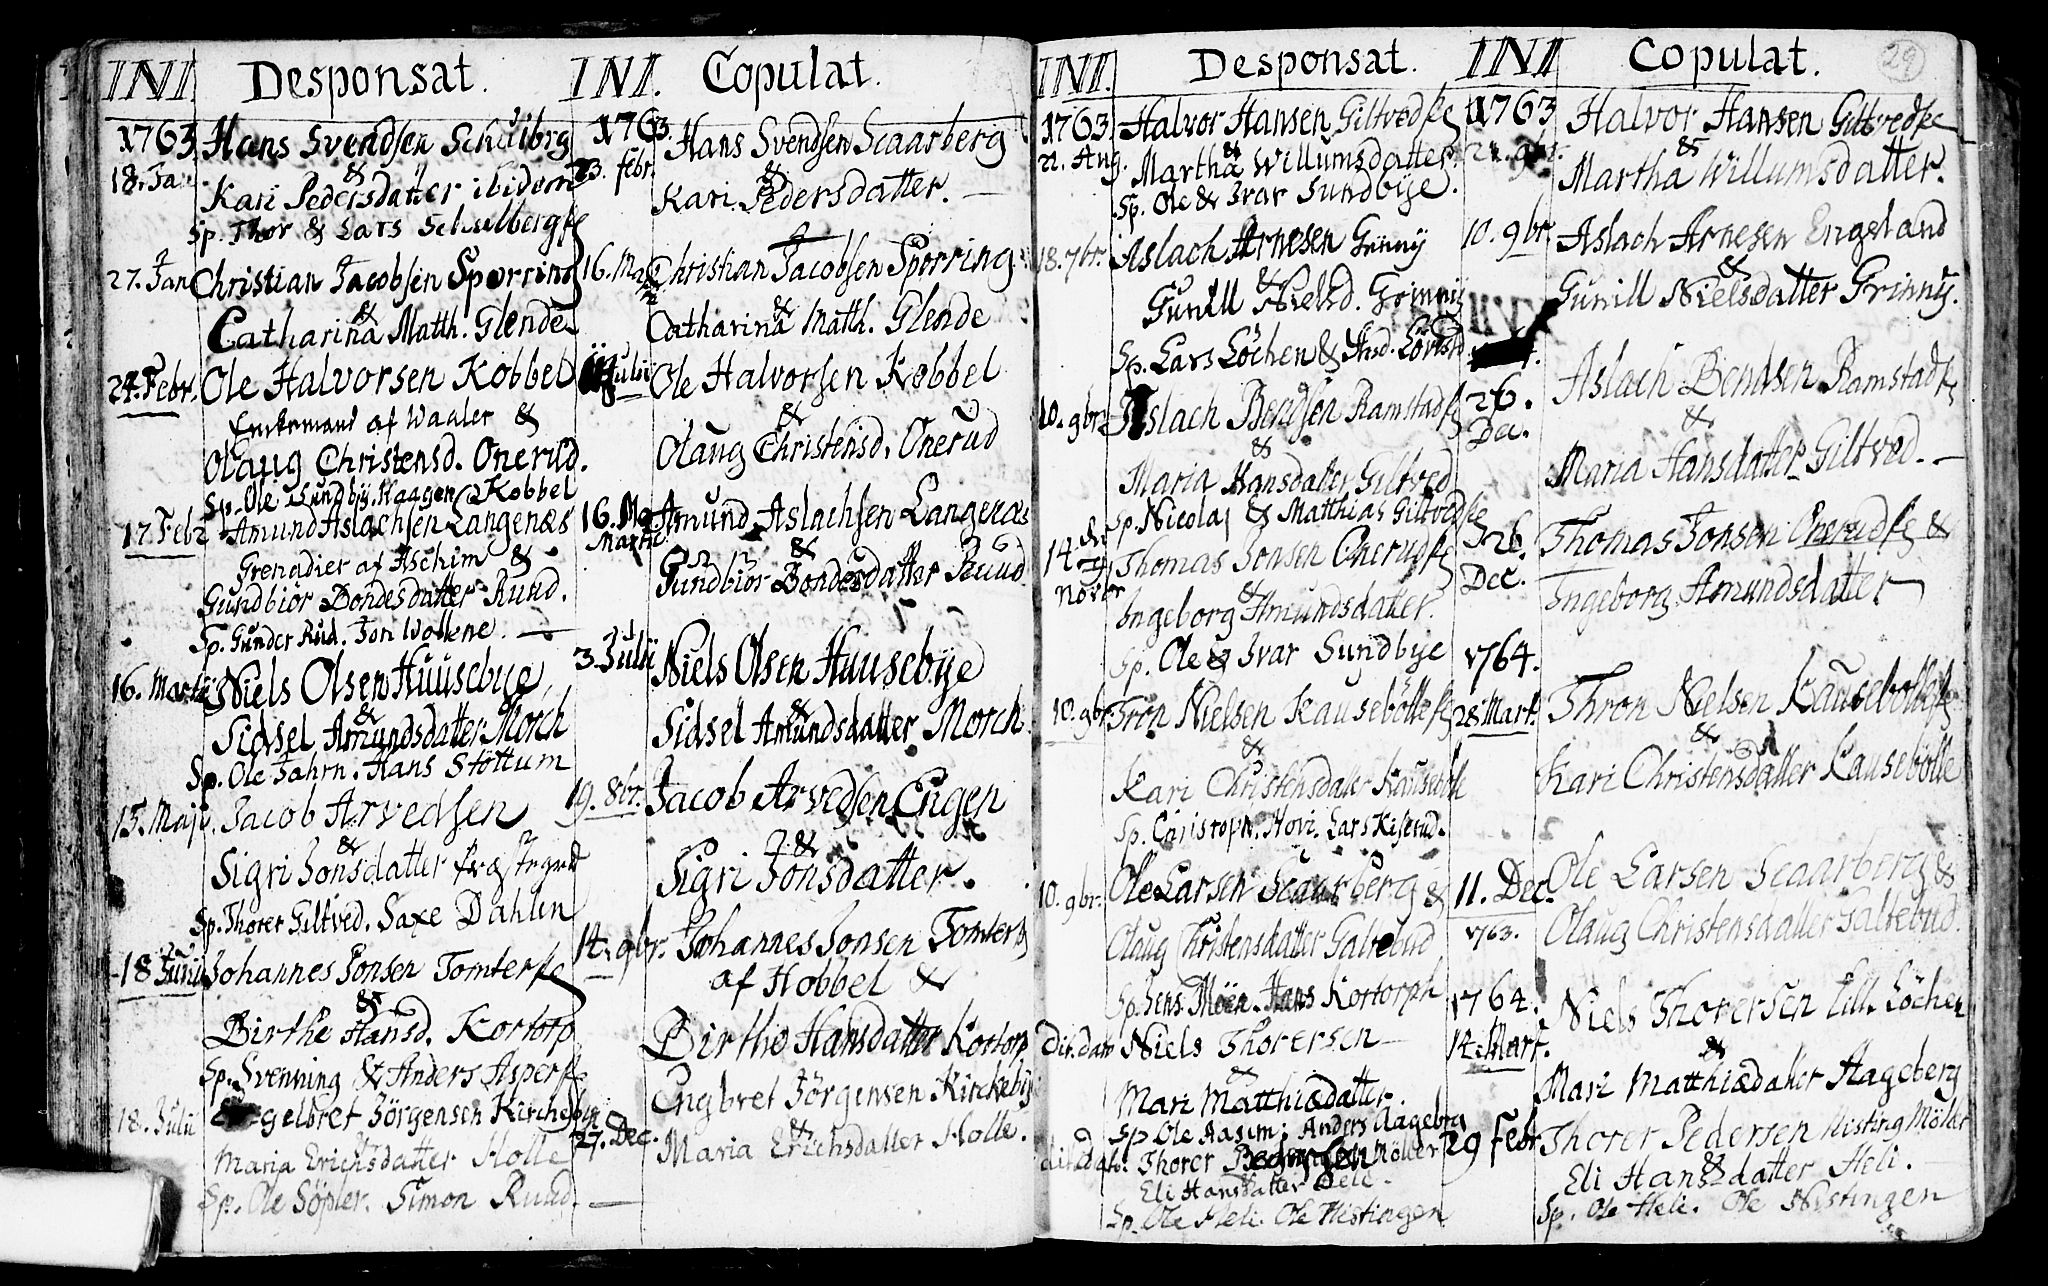 INI Desponsat.
1763 Hans Svendsen Schulbrg
18. Jan. &
Kari Pedersdatter ibidem
Sp. Thor & Lars Schulberg
27. Jan Christian Jacobsen Sporring
&
Catharina Matth. Glende
24. Febr. Ole Halvorsen Kobbel
Enkemand af Waaler &
Olaug Christensd. Onerud.
Sp. Ole Sundby. Haagen Kobbel
17. Febr Amund Aslachsen Langenæs
Grenadier af Aschim &
Gundbior Bondesdatter Ruud.
Sp. Gunder Rud. Jon Wollene.
16. Martij Niels Olsen Huusebye
&
Sidsel Amundsdatter Morch
Sp. Ole Jahrn. Hans Stöttum
15. Maji. Jacob Arvedsen
&
Sigri Jonsdatter
Sp. Thorer Giltved. Saxe Dahlen
18 Junii Johannes Jonsen Tomter
&
Birthe Hansd. Kortorp
Sp. Svenning & Anders Asper
18. Julii Engelbret Jörgensen Kirchebye
Maria Erichsdatter Holle
Sp. Ole Söpler. Simon Ruud.
INI. Copulat.
1763. Hans Svendsen Scaarberg
23. febr. &
Kari Pedersdatter.
16. Maji Christian Jacobsen Sporring
&
Catharina Matth. Glende
Julii Ole Halvorsen Kobbel
&
Olaug Christensd. Onerud
16. Martii Amund Aslachsen Langenæs
&
Gundbior Bondesdatter Ruud
3. Julii Niels Olsen Huusebye
&
Sidsel Amundsdatter Morch
19. 8br. Jacob Arvedsen Engen
&
Sigri Jonsdatter.
14. 9br. Johannes Jonsen Tomter
af Hobbel &
Birthe Hansdatter Kortorp
Engbret Jörgensen Kirkeby
27. Dec. &
Maria Erichsdatter Holle.
INI. Desponsat.
1763. Halvor Hansen Giltvedsk
21. Aug. &
Martha Willumsdatter
Sp. Ole & Ivar Sundbye.
18. 7br. Aslach Arnesen Grinny
&
Gunill Nielsd. Grinny
Sp. Lars Löchen & And.
10. 9br. Aslach Bendsen Ramstad
&
Maria Hansdatter Giltved
Sp. Nicolaj & Matthias Giltved
14. Novbr Thomas Jonsen Onerud
&
Ingeborg Amundsdatter.
Sp. Ole & Ivar Sundbye
10. 9br. Tron Nielsen Kausebölle
&
Kari Christensdater Kausebölle
Sp. Christoph. Hovi. Lars Kiserud.
10. 9br. Ole Larsen Scaarberg &
Olaug Christensdatter Galtebud
Sp. Jens Moen. Hans Kortorph
Dit. dato Niels Thorersen
&
Mari Matthiædatter.
Sp. Ole Aasim; Anders Hageberg
dit. dato. Thorer Pedersen Möller
Eli Hansdatter Heli.
Sp. Ole Heli. Ole Nistingen
INI Copulat. 29
1763 Halvor Hansen Giltvedsk
21. 9br. &
Martha Willumsdatter.
10. 9br. Aslach Arnesen Engeland
&
Gunill Nielsdatter Grinny.
Aslach Bendsen Ramstad
26. Dec. &
Maria Hansdatter Giltved.
26. Dec. Thomas Jonsen Onerud &
Ingeborg Amundsdatter
1764.
28 Mart. Thron Nielsen Kausebölle
&
Kari Christensdatter Kausebölle
11. Dec. 1763. Ole Larsen Scaarberg &
Olaug Christensdatter Galtebud.
1764. Niels Thorersen Löchen
14. Mart. &
Mari Matthiædater Hageberg
29 Febr. Thorer Pedersen Nisting Möller
&
Eli Hansdatter Heli.
Sp. Ole Heli. Ole Nistingen